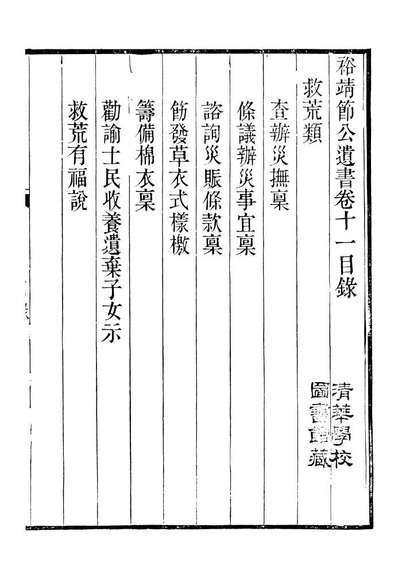 裕靖節公遺書卷十一目錄
救荒類
查辦災撫稟
條議辦災事宜稟
諮詢災賑條款稟
飭發草衣式樣檄
籌備棉衣稟
勸諭士民收養遺棄子女示
救荒有福說
清華學校
圖書館藏